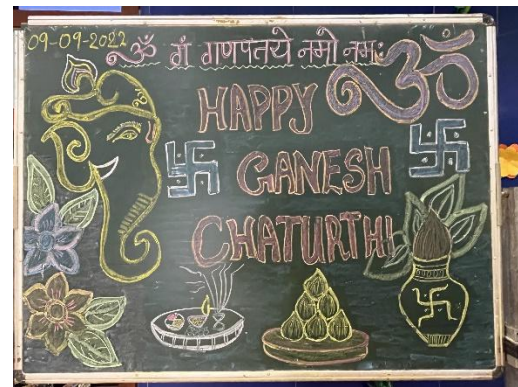 09-09-2022
ॐ गं गणपतये नमो नमः
ॐ
HAPPY
GANESH
CHATURTHI